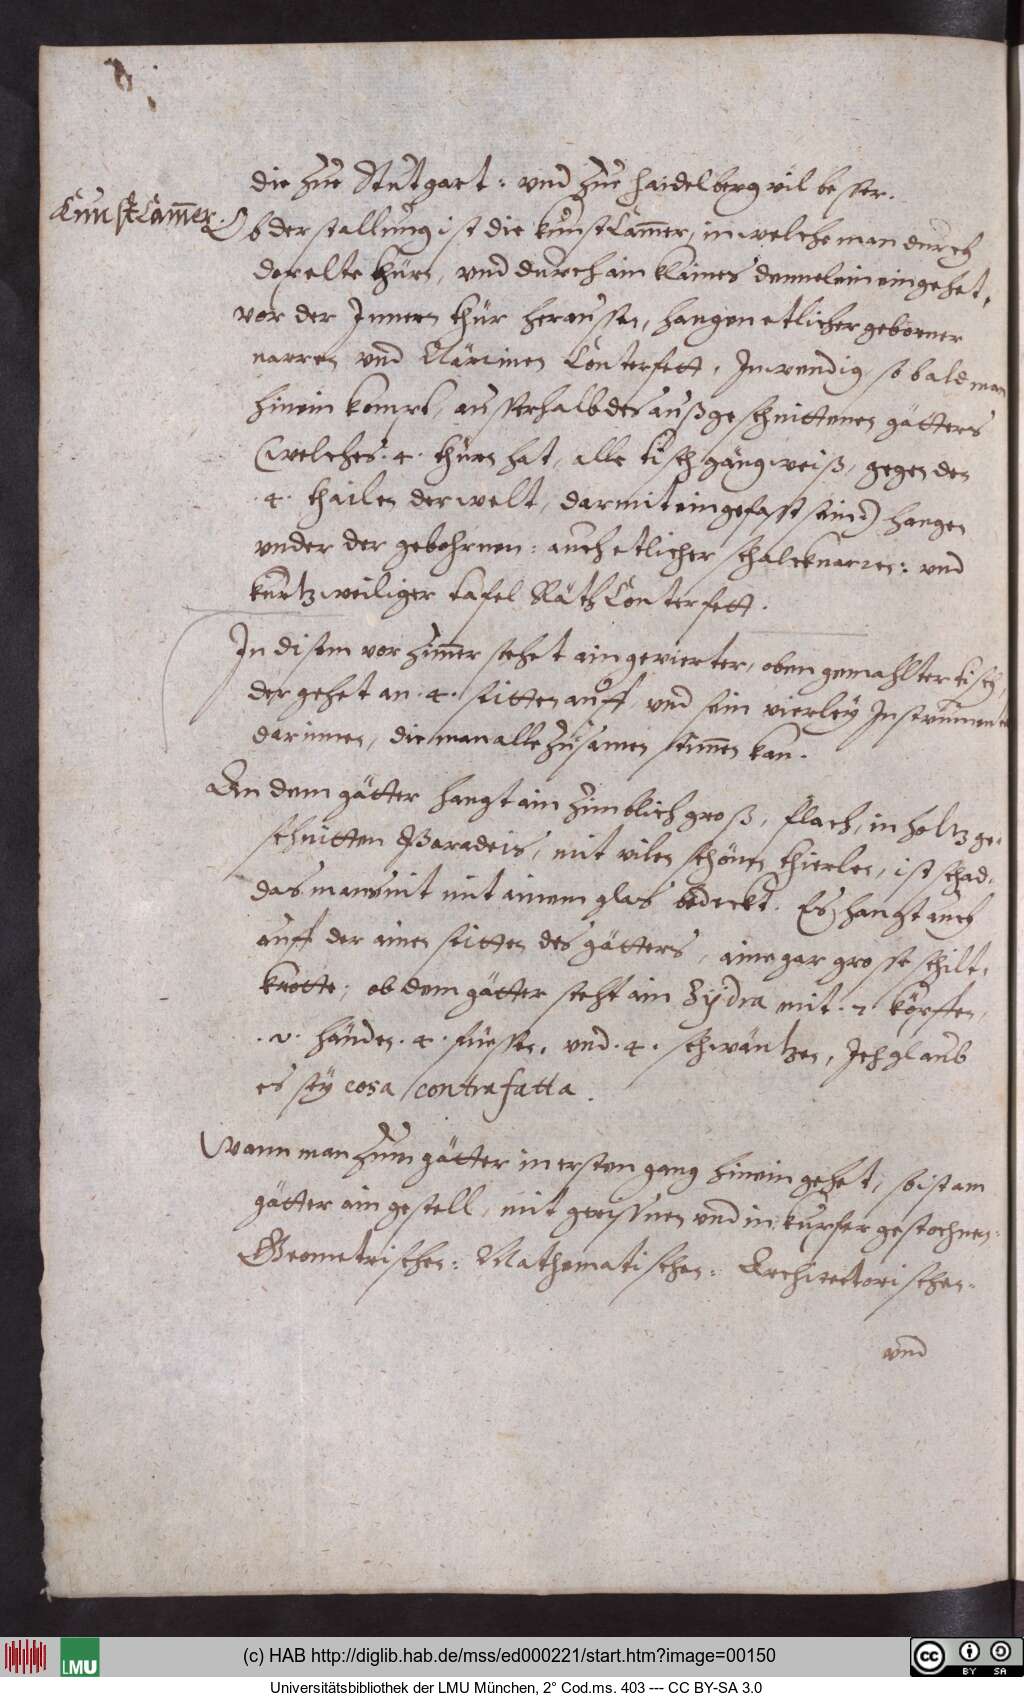 die zue Stutgart: und zue Haidelberg vil besser.
KunstCam̄er.
Ob der stallung ist die kunstCam̄er, in welche man durch
doppelte thüre, vnd durch ain klaines dennelein eingehet,
vor der Innern thür heraussen, hangen etlicher geborner
narren vnd Närrinen Conterfett, Inwendig so bald man
hinein kompt, ausserhalb des außgeschnittenen gätters
(welches .4. thüren hat, alle tisch gängweiß, gegen den
.4. thailen der welt, darmit eingefasst seind) hangen
vnder der gebohrnen: auch etlicher schalcknarren: vnd
kurtzweiliger tafel Räth Conterfett.
In disem vorzim̄er stehet ain gevierter, oben gemahlter tisch,
der gehet an .4. seitten auff, vnd sein vierley Instrumenta
darinnen, die man alle zusamen stim̄en kan.
An dem gätter hangt ain zimblich groß, flach, in holtz ge-
schnitten Paradeis, mit vilen schönen thierlen, ist schad,
das mans nit mit ainem glas bedeckt. Es hangt auch
auff der ainen seitten des gätters, aine gar grosse schilt-
krotte; ob dem gätter steht ain Hydra mit .7. köpffen,
.2. händen .4. füessen, vnd .4. schwäntzen, Ich glaub
es sey cosa contrafatta.
Wann man zum gätter in ersten gang hinein gehet, so ist am
gätter ain gestell, mit gerissnen vnd in kupfer gestochnen:
Geometrischen: Mathematischen: Architectorischen:
vnd
(c) HAB http://diglib.hab.de/mss/ed000221/start.htm?image=00150
LMU
BY SA
Universitätsbibliothek der LMU München, 2° Cod.ms. 403 --- CC BY-SA 3.0